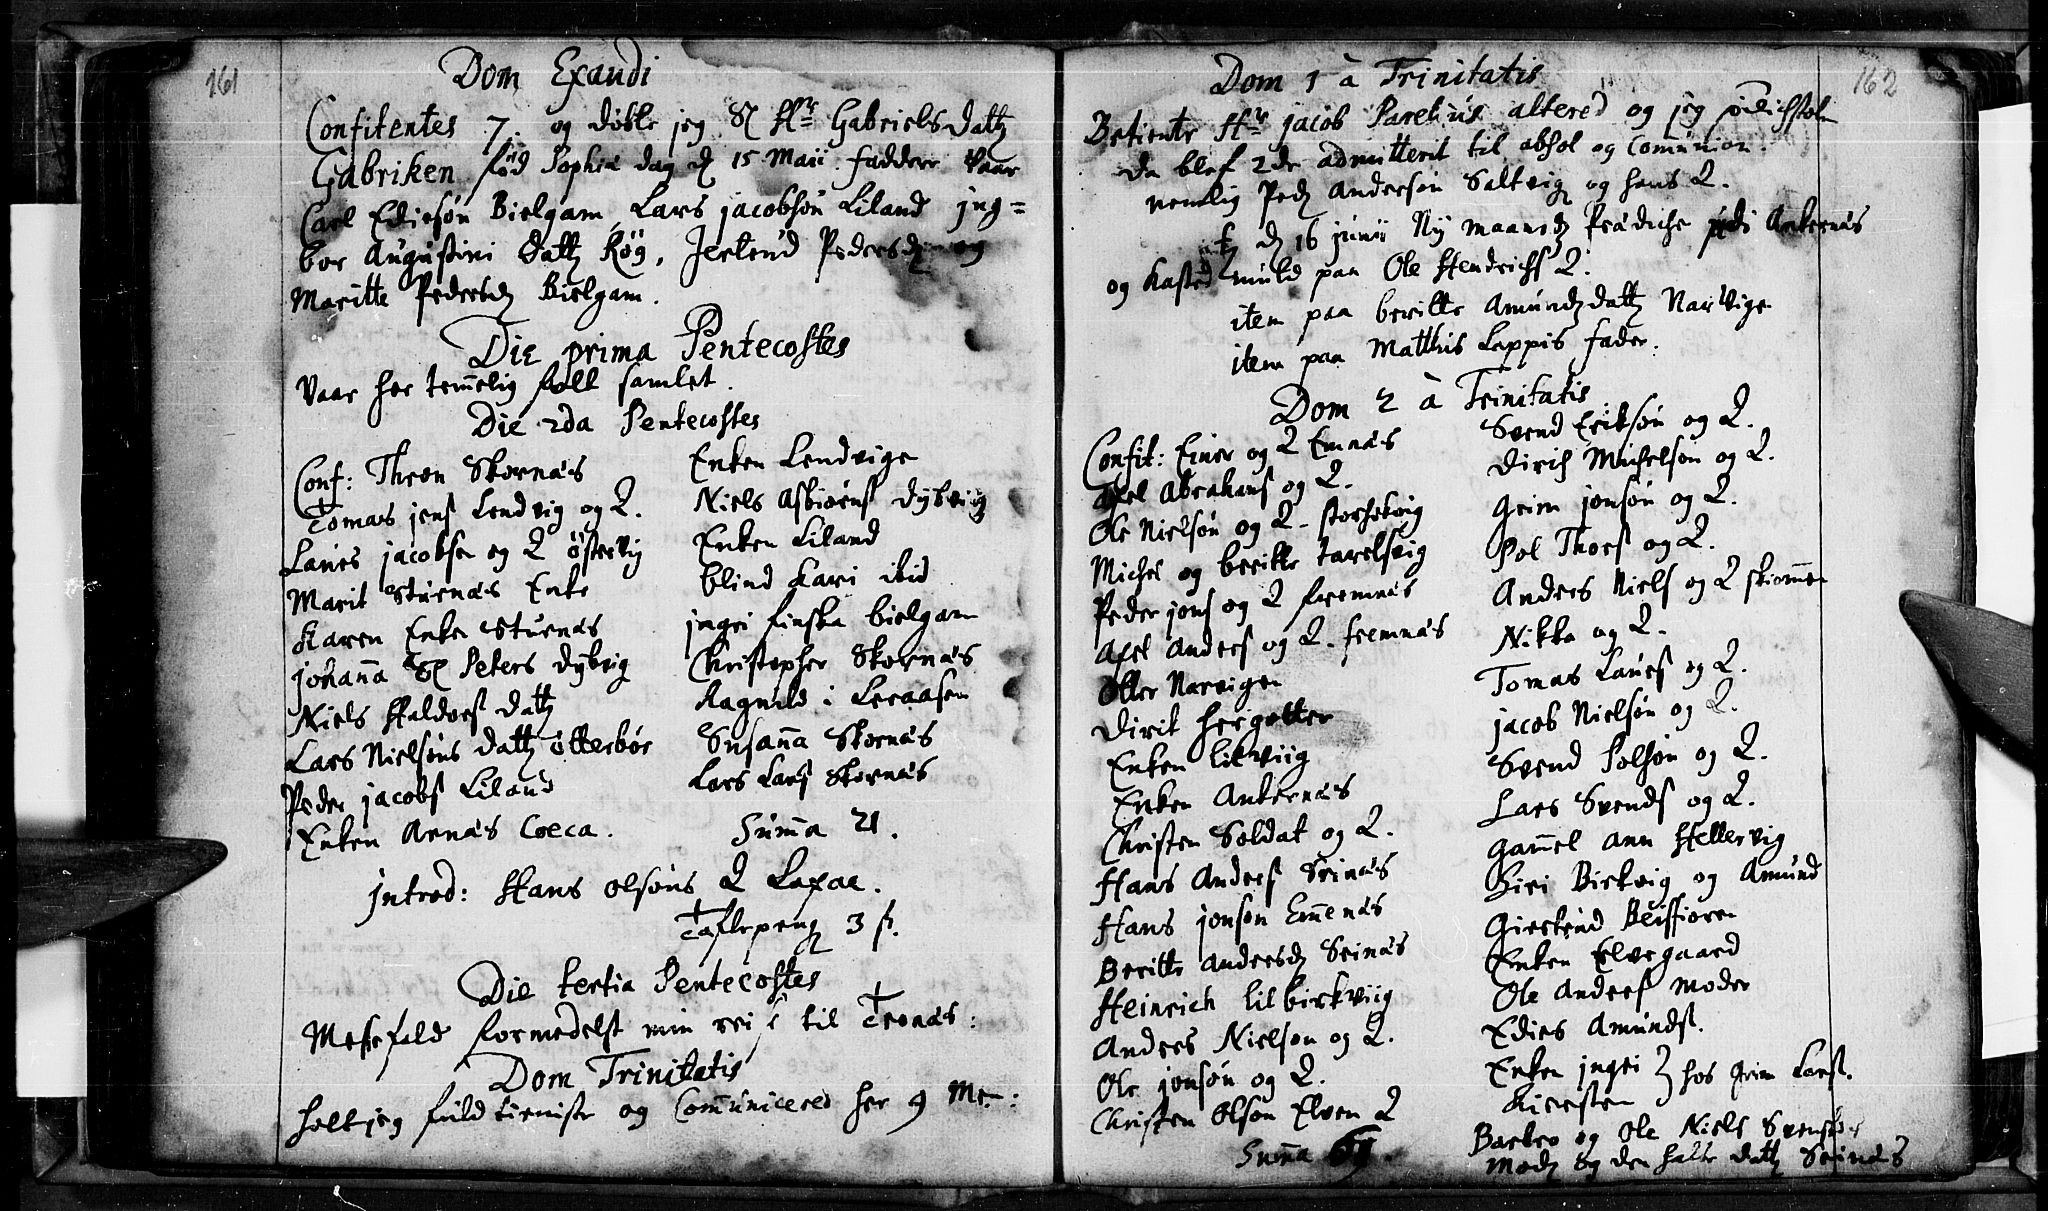 161
Dom Exaudi
Confitentes 7. og døbte jeg Sl Hr Gabriels datt
Gabriken fød Sophiæ dag d 15 Maii. faddere vaar
Carl Ediesøn Bielgam, Lars jacobsøn Liland jng=
bor Augustini datt Røg, Jertrud Pedersd og
Maritte Pedersd Bielgam.
Die prima Pentecostes
Vaar her temelig folk samlet.
Die 2da Pentecostes
Conf: Thron Skornæs
Tomas jens Lendvig og Q.
Laures jacobsen og Q Østervig
Marit Sturnæs Enke
Karen Enke Sturnæs
johanna Sl Peters dybvig
Niels Haldors datt
Lars Nielsøns datt Øtterbør
Peder jacobs Liland
Enken Arnæs Coeca.
Enken Lendvige
Niels Asbiørns dybvig
Enken Liland
blind Kari ibid
jngri finska bielgam
Christopher Skornæs
Ragnild i Leraasen
Susanna Skornæs
Lars Lars Skornæs
Summa 21.
jntrod: Hans Olsøns Q Laxaa.
Taflepeng 3 s.
Die tertia Pentecostes
Messefald formedelst min reise til Tronæs:
Dom Trinitatis
holt jeg fuld tieniste og Communicered her 9 Me:
162
Dom 1 à Trinitatis
Betiente Hr jacob Parelius altered og jeg
da blef 2de admitterit til absol og Comunion.
nemlig Ped Andersøn Saltvig og hans Q.
d 16 junii Ny maaneds Prædiche Ankernæs
og Kasted muld paa Ole Hendrichs Q.
item paa beritte Amundsdatt Narvige
item paa Matthis Lappis fader.
Dom 2 à Trinitatis
Confit: Einer og Q Emnæs
Axel Abrahams og Q.
Ole Nielsøn og Q
Michel og beritte tarelsvig
Peder jons og Q fremnæs
Axel Anders og Q. fremnæs
Oller Narvigen
Dirit hergotter
Enken litviig
Enken Ankernæs
Christen Soldat og Q.
Hans Anders Seinæs
Hans jonsøn Emenæs
Beritte Andersd Seinæs
Heinrich lilbirkviig
Anders Nielsøn og Q.
Ole jonsøn og Q.
Christen Olsøn Elven Q
Summa 69.
Svend Eriksøn og Q.
Dirich Michelsøn og Q.
Grim jonsøn og Q.
Pol Thors og Q.
Anders Niels og Q skiommen
Nikka og Q.
Tomas Laures og Q.
jacob Nielsøn og Q.
Svend Polsøn og Q.
Lars Svends og Q.
Gammel Ann Hellervig
Siri Birkvig og Amund
Giertrud Beisfioren
Enken Elvegaard
Ole Anders moder
Edies Amunds.
Enken jngri } hos Grim Lars.
Kiersten
Barbro og Ole Niels Svens
Mod og den halte datt Seinæs